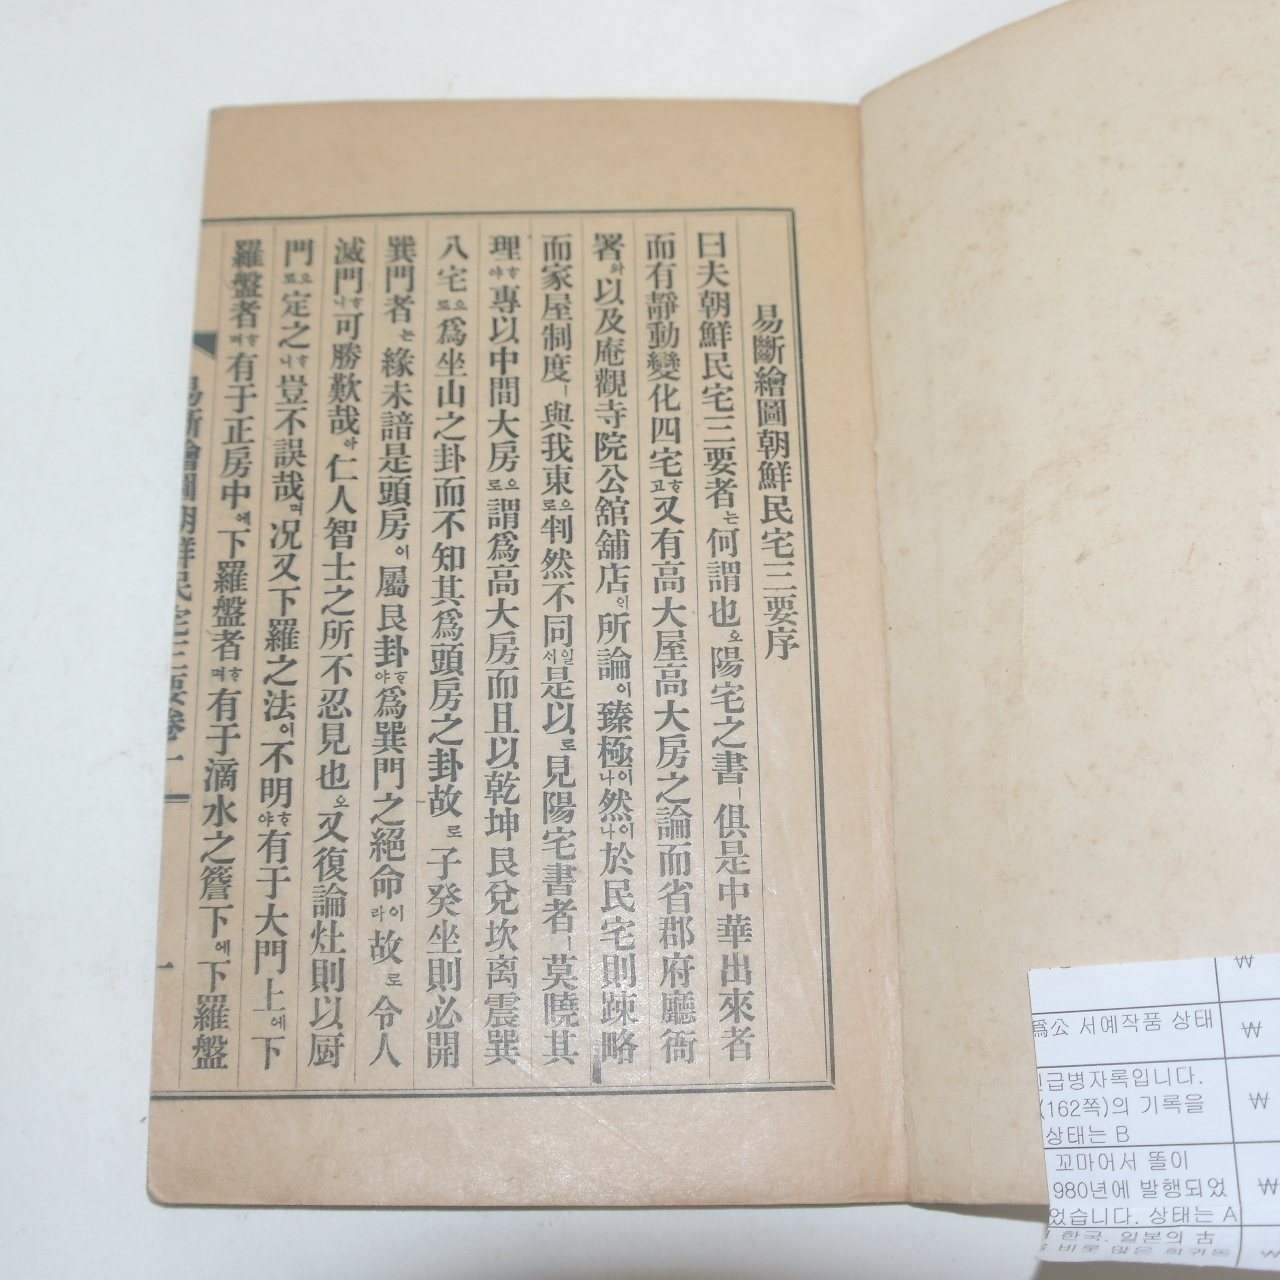 易斷繪圖朝鮮民宅三要序
曰夫朝鮮民宅三要者는何謂也오陽宅之書ㅣ俱是中華出來者
而有靜動變化四宅하고又有高大屋高大房之論而省郡府廳衙
署와以及庵觀寺院公舘舖店의所論이臻極이나然이나於民宅則踈略
而家屋制度ㅣ與我東으로判然不同일서是以로見陽宅書者ㅣ莫曉其
理하야專以中間大房으로謂爲高大房而且以乾坤艮兌坎离震巽
八宅으로爲坐山之卦而不知其爲頭房之卦故로子癸坐則必開
巽門者는緣未諳是頭房이屬艮卦하야爲巽門之絕命이라故로令人
滅門하니可勝歎哉아仁人智士之所不忍見也오又復論灶則以厨
門으로定之하니豈不誤哉며况又下羅之法이不明하야有于大門上에下
羅盤者하며有于正房中에下羅盤者하며有于滴水之簷下에下羅盤
易斷繪圖朝鮮民宅三要卷一
一
爲公 서예작품 상태
급병자록입니다.
(162쪽)의 기록을
상태는 B
꼬마어서 똘이
980년에 발행되었
었습니다. 상태는 A
한국, 일본의 古
₩
₩
₩
₩
₩